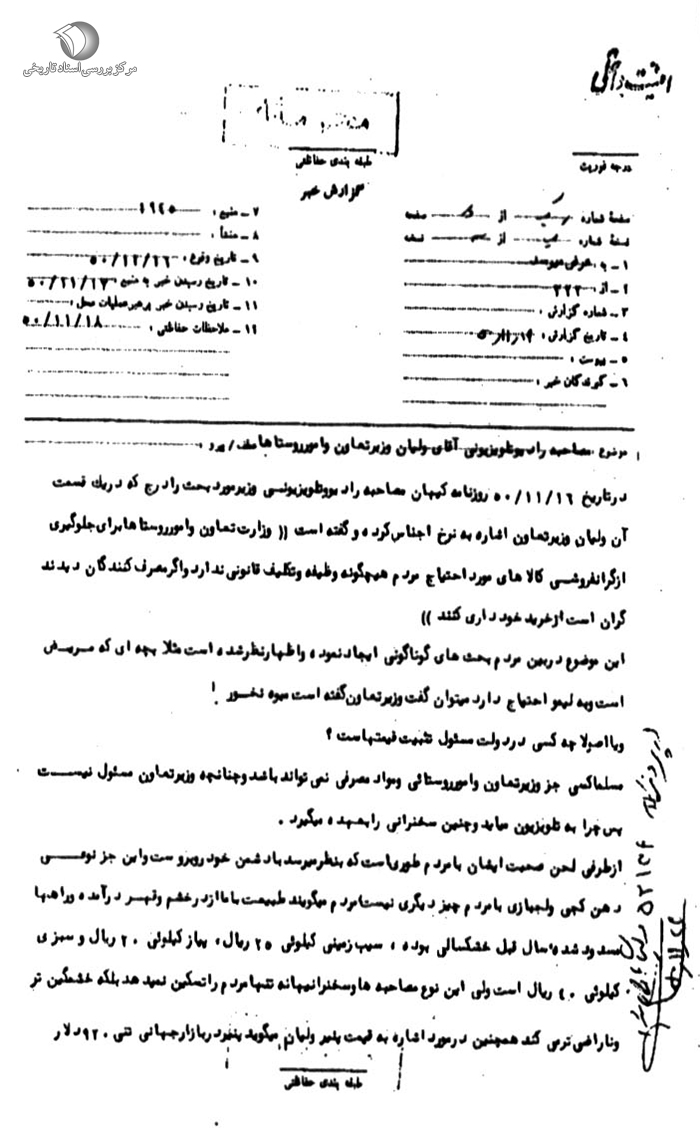 مرکز بررسی اسناد تاریخی
محرمانه
طبقه بندی حفاظتی
درجه فوریت
گزارش خبر
صفحه شماره یک از صفحه
نسخه شماره از نسخه
۱ - به عرض میرسد
۲ - از ۳۲۲
۳ - شماره گزارش :
۴ - تاریخ گزارش :
۵ - پیوست :
۶ - گیرندگان خبر :
۷ - منبع : ۱۹۴۵
۸ - منشأ :
۹ - تاریخ وقوع : ۵۰/۱۲/۱۶
۱۰ - تاریخ رسیدن خبر به منبع ۵۰/۲۱/۱۷
۱۱ - تاریخ رسیدن خبر برهبر عملیات محل :
۱۲ - ملاحظات حفاظتی : ۵۰/۱۱/۱۸
موضوع : مصاحبه رادیو تلویزیونی آقای ولیان وزیر تعاون و امور روستاها عطف / پیرو :
در تاریخ ۵۰/۱۱/۱۶ روزنامه کیهان مصاحبه رادیو و تلویزیونی وزیر مورد بحث را درج که در یک قسمت
آن ولیان وزیر تعاون اشاره به نرخ اجناس کرده و گفته است (( وزارت تعاون و امور روستاها برای جلوگیری
از گرانفروشی کالاهای مورد احتیاج مردم هیچگونه وظیفه و تکلیف قانونی ندارد و اگر مصرف کنندگان دیدند
گران است از خرید خود داری کنند ))
این موضوع در بین مردم بحث های گوناگونی ایجاد نموده و اظهار نظر شده است مثلا بچه ای که مریض
است و به لیمو احتیاج دارد میتوان گفت وزیر تعاون گفته است میوه نخور !
و یا اصولا چه کسی در دولت مسئول تثبیت قیمتهاست ؟
مسلما کسی جز وزیر تعاون و امور روستائی و مواد مصرفی نمی تواند باشد و چنانچه وزیر تعاون مسئول نیست
پس چرا به تلویزیون میاید و چنین سخنرانی را بعهده میگیرد .
از طرفی لحن صحبت ایشان با مردم طوری است که بنظر میرسد با دشمن خود روبروست و این جز نوعی
دهن کجی و لجبازی با مردم چیز دیگری نیست مردم میگویند طبیعت با ما از در خشم و قهر درآمده و راهها
مسدود شده سال قبل خشکسالی بوده ، سیب زمینی کیلوئی ۲۵ ریال ، پیاز کیلوئی ۲۰ ریال و سبزی
کیلوئی ۴۰ ریال است ولی این نوع مصاحبه ها و سخنرانیها نه تنها مردم را تسکین نمیدهد بلکه خشمگین تر
و ناراضی تر می کند همچنین در مورد اشاره به قیمت پنیر ولیان میگوید پنیر در بازار جهانی تنی ۹۲۰ دلار
طبقه بندی حفاظتی